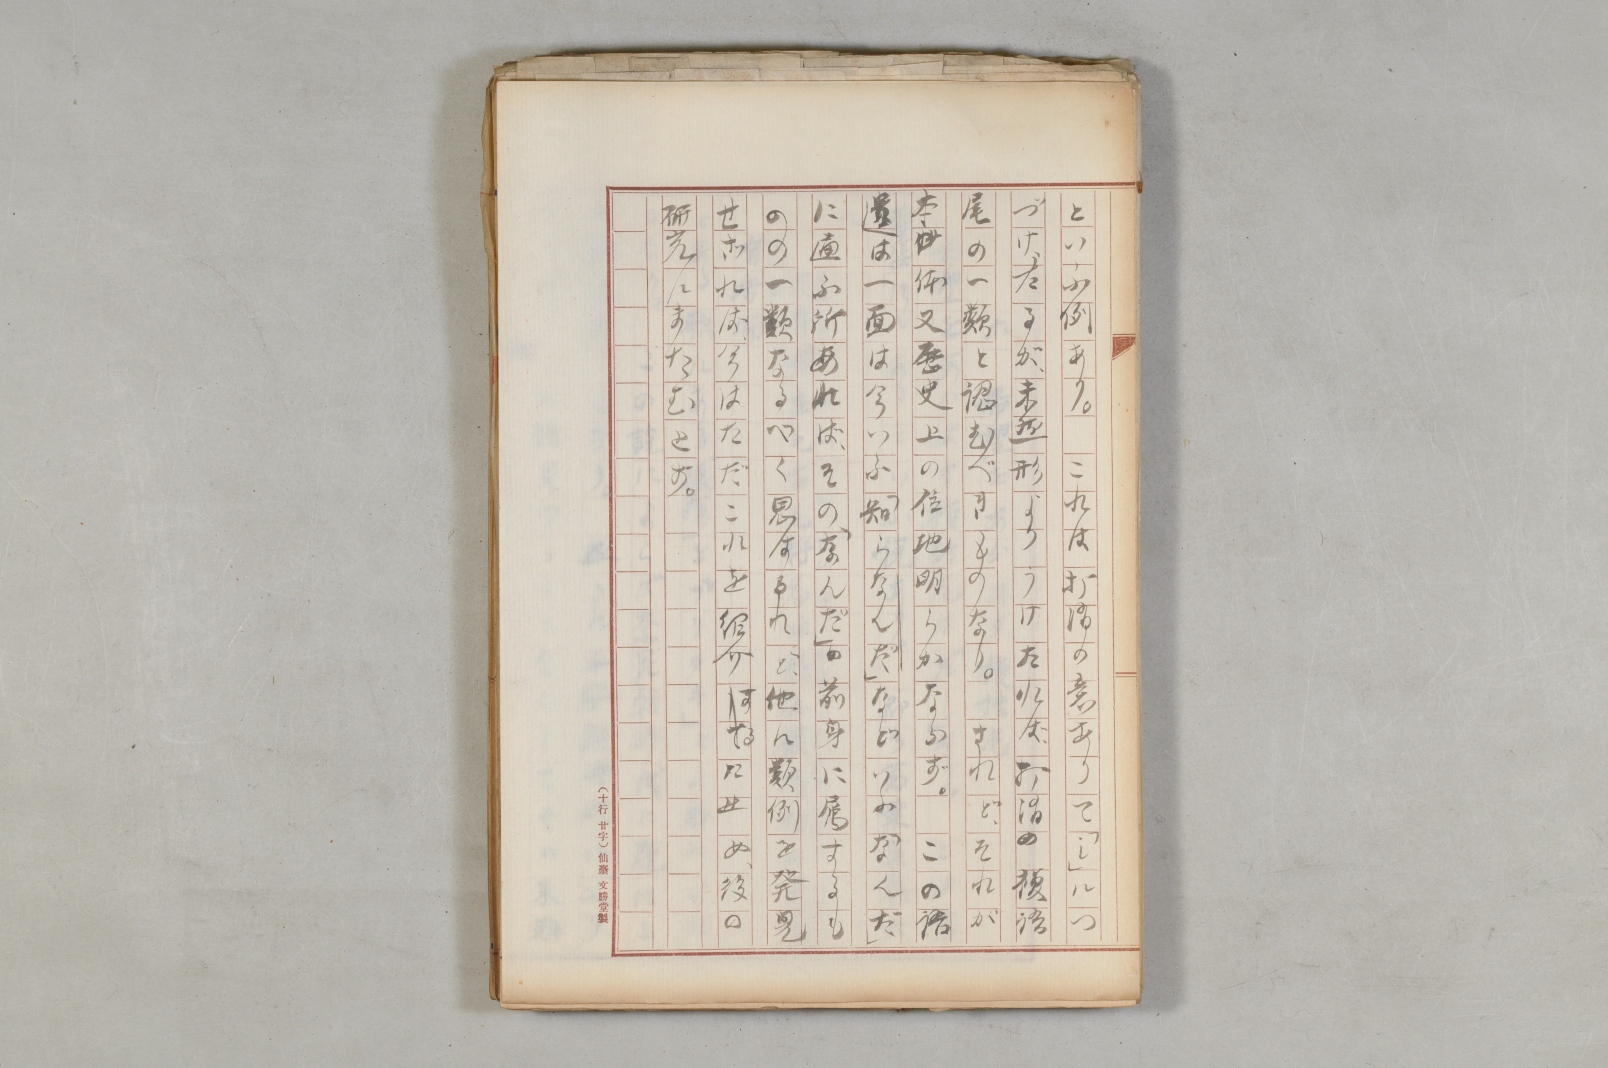 といふ例あり。　これは打消の意ありて「」につ
づけたるが、未然形よりうけたれば、打消の複語
尾の一類と認むべきものなり。　されど、それが
本体又歴史上の位地明らかならず。　この語
は一面は今いふ「知らなんだ」などいふ「なんだ」
に通ふ所あれば、その「なんだ」の前身に属するも
のの一類なるべく思はるれど、他に類例を発見
せざれば、今はただこれを紹介止め、後の
研究にまたむとす。
（十行廿字）仙臺 文勝堂製